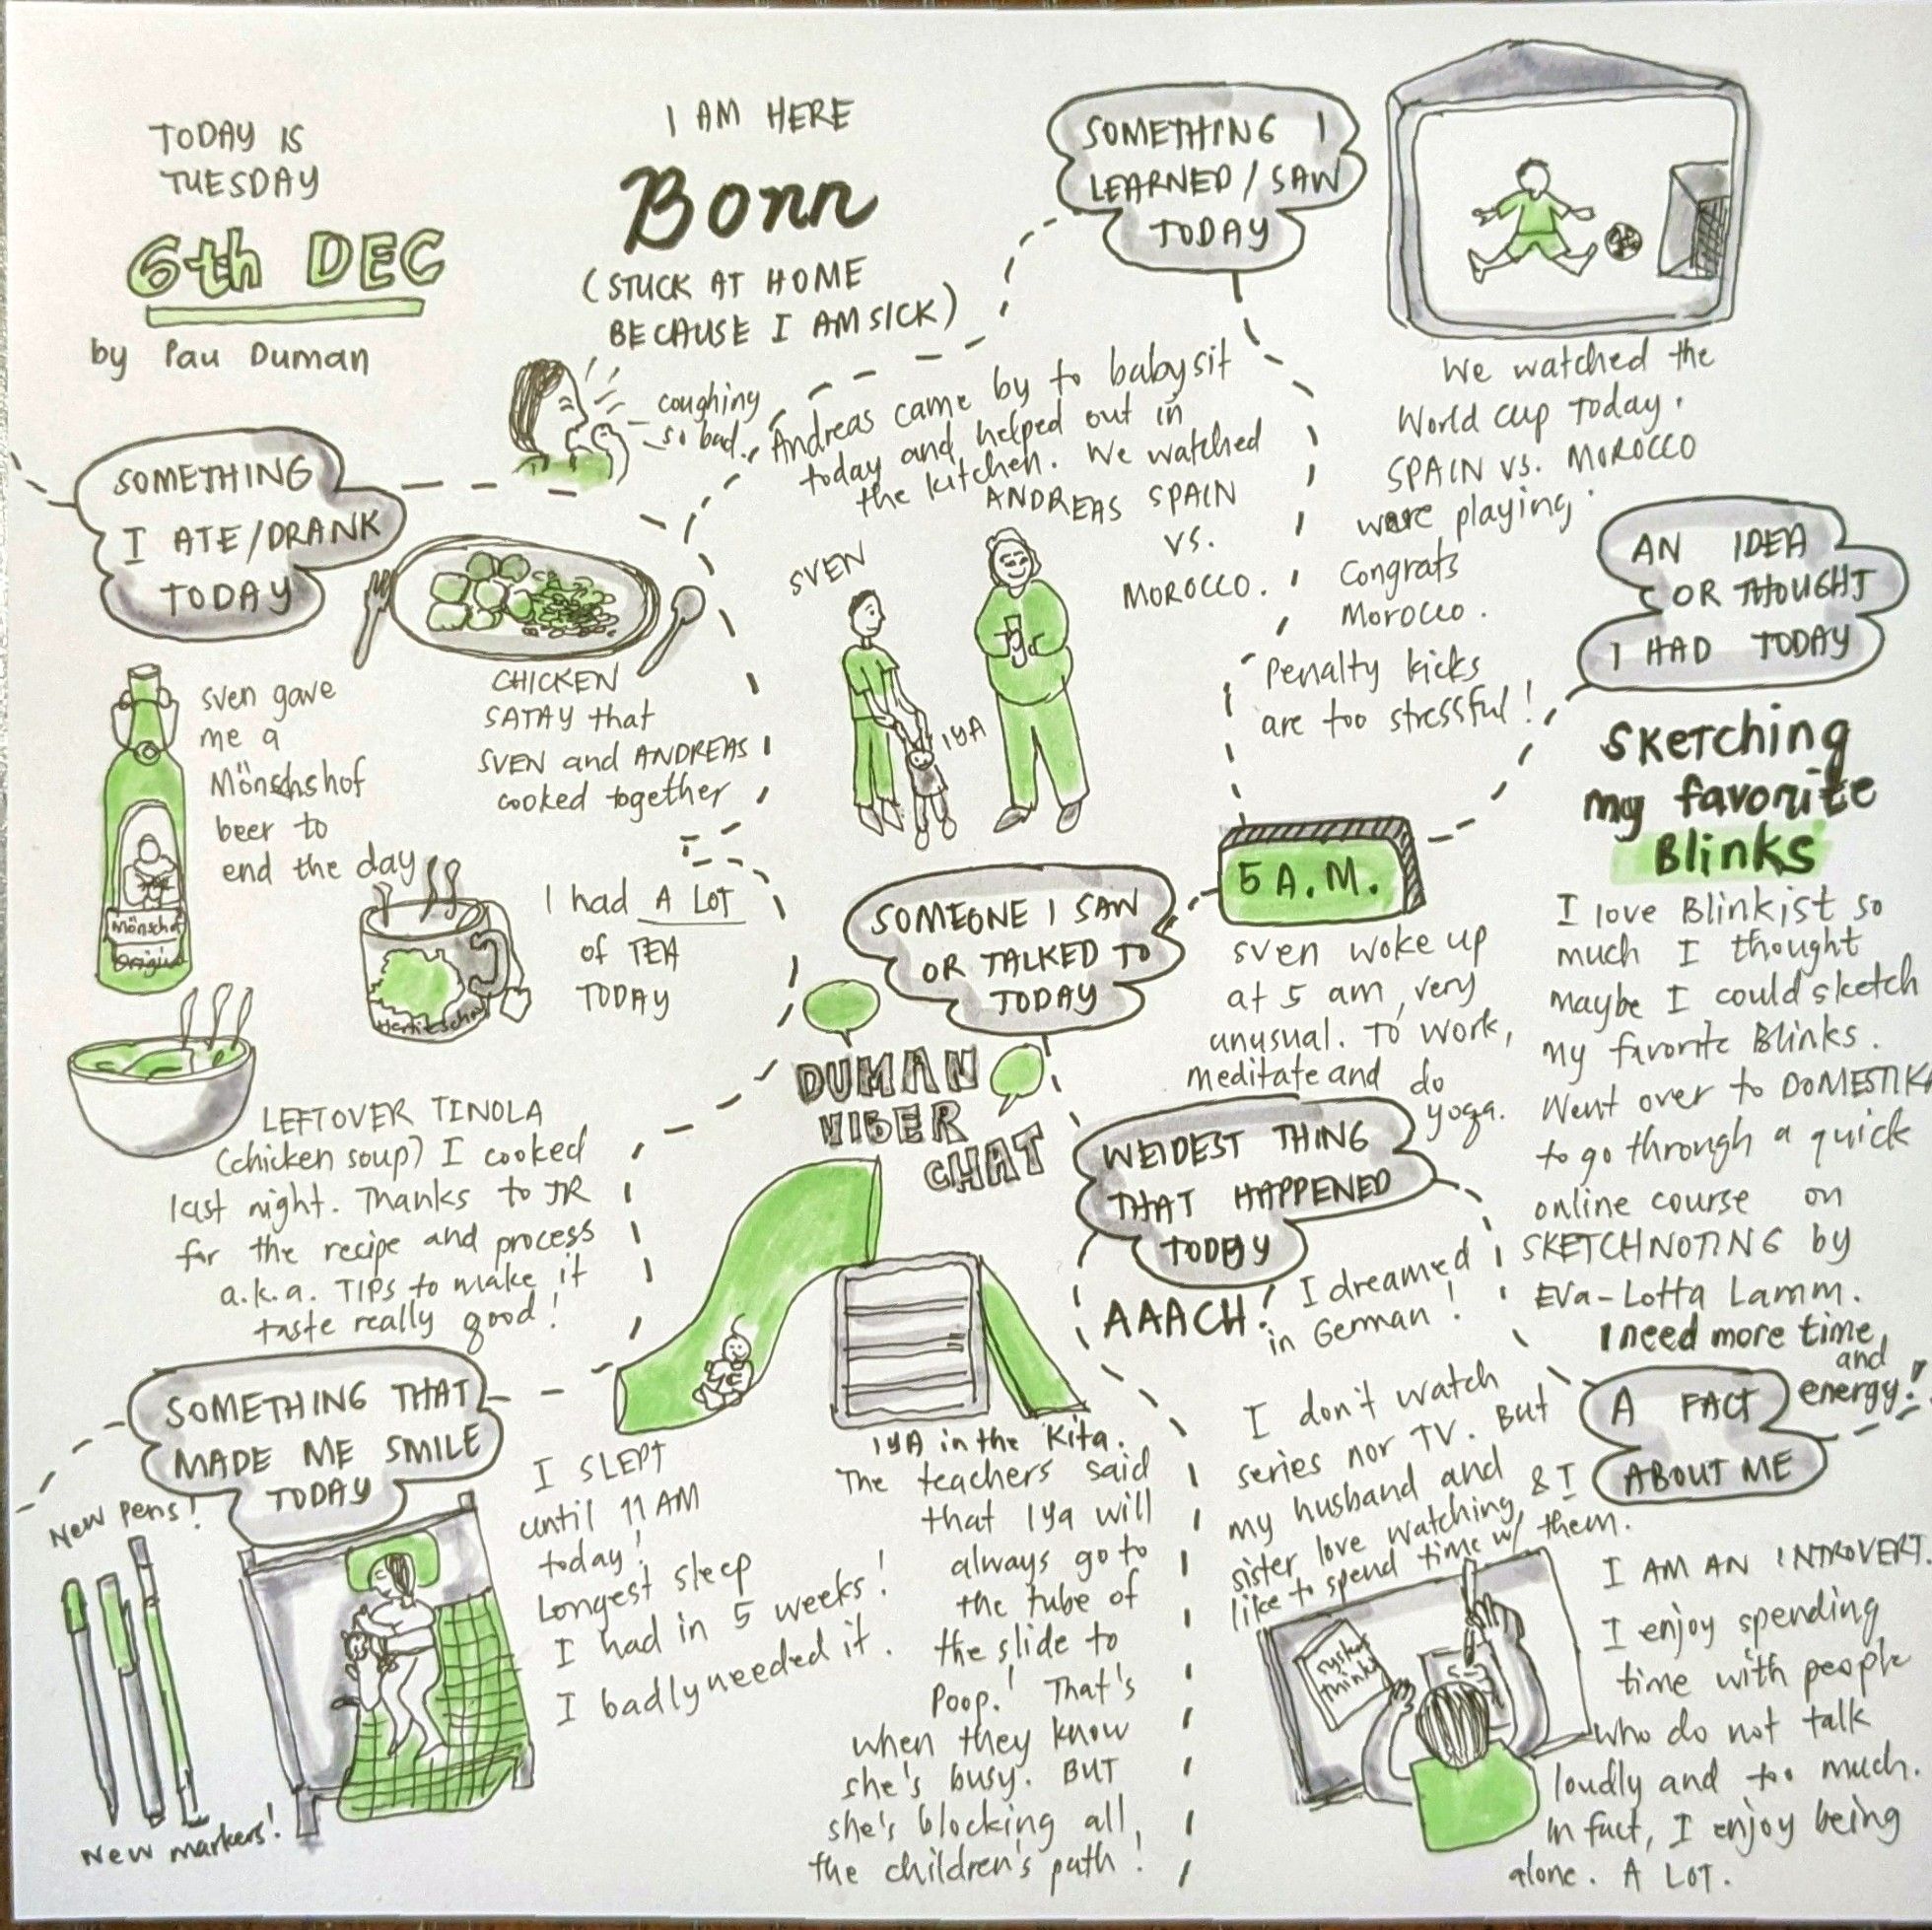 TODAY IS
TUESDAY
6th DEC
by Pau Duman
I AM HERE
Bonn
(STUCK AT HOME
BECAUSE I AM SICK)
coughing
so bad.
SOMETHING I
LEARNED / SAW
TODAY
We watched the
World Cup Today.
SPAIN VS. MOROCCO
were playing.
Congrats
Morocco.
Penalty kicks
are too stressful!
SOMETHING
I ATE/DRANK
TODAY
CHICKEN
SATAY that
SVEN and ANDREAS
cooked together
Sven gave
me a
Mönschshof
beer to
end the day
Mönschof
Original
I had A LOT
of TEA
TODAY
LEFTOVER TINOLA
(chicken soup) I cooked
last night. Thanks to JR
for the recipe and process
a.k.a. TIPS to make it
taste really good!
Andreas came by to babysit
today and helped out in
the kitchen. We watched
SPAIN
VS.
MOROCCO.
ANDREAS
SVEN
IYA
SOMEONE I SAW
OR TALKED TO
TODAY
DUMAN
VIBER
CHAT
IYA in the Kita.
The teachers said
that Iya will
always go to
the tube of
the slide to
Poop! That's
when they know
she's busy. BUT
she's blocking all
the children's path!
5 A.M.
Sven woke up
at 5 am, very
unusual. To work,
meditate and do
yoga.
AN IDEA
OR THOUGHT
I HAD TODAY
Sketching
my favorite
Blinks
I love Blinkist so
much I thought
maybe I could sketch
my favorite Blinks.
Went over to DOMESTIKA
to go through a quick
online course on
SKETCHNOTING by
Eva-Lotta Lamm.
I need more time,
and
energy!
WEIDEST THING
THAT HAPPENED
TODAY
AAACH! I dreamed
in German!
SOMETHING THAT
MADE ME SMILE
TODAY
New Pens!
New markers!
I SLEPT
until 11 AM
today!
Longest sleep
I had in 5 weeks!
I badly needed it.
A FACT
ABOUT ME
I don't watch
series nor TV. But
my husband and
sister love watching, & I
like to spend time w/ them.
I AM AN INTROVERT.
I enjoy spending
time with people
who do not talk
loudly and too much.
In fact, I enjoy being
alone. A LOT.